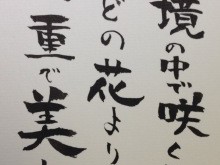 境の中で咲く
どの花より
重で美